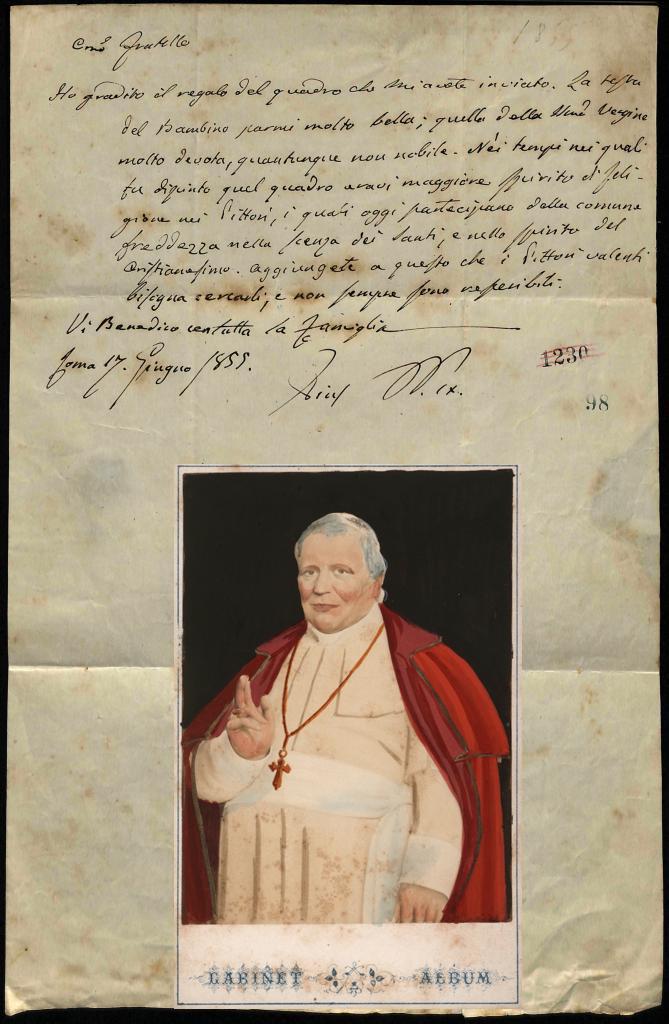 Cmo Fratello
Ho gradito il regalo del quadro che mi avete inviato. La testa
del Bambino parmi molto bella; quella della Vergine
molto devota, quantunque non nobile. Nei tempi nei quali
fu dipinto quel quadro eravi maggiore spirito di Reli-
gione nei Pittori, i quali oggi partecipano della comune
freddezza nella scenza dei Santi, e nello spirito del
Cristianesimo. Aggiungete a questo che i Pittori valenti
bisogna cercarli, e non sempre sono reperibili.
Vi Benedico con tutta la Famiglia
Roma 17. Giugno 1855.
Pius P. IX.
1230
98
CABINET ALBUM